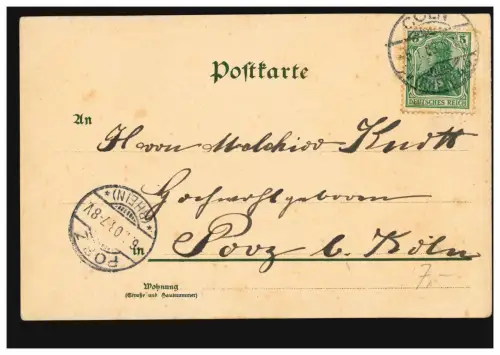 CÖLN
5 5
DEUTSCHES REICH
Postkarte
An
Herrn Melchior Knott
Hochwohlgeboren
in Porz b. Köln
PORZ
*(RHEIN)*
7,–
Wohnung
(Straße und Hausnummer)